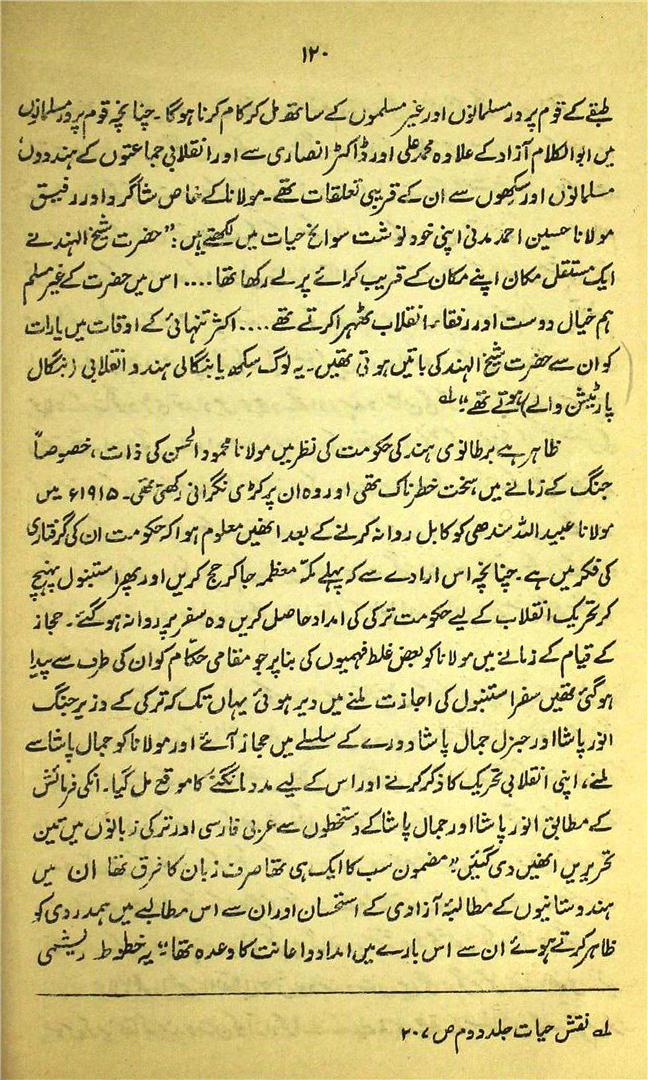 ۱۲۰
طبقے کے قوم پرور مسلمانوں اور غیر مسلموں کے ساتھ مل کر کام کرنا ہوگا۔ چنانچہ قوم پرور مسلمانوں
میں ابوالکلام آزاد کے علاوہ محمد علی اور ڈاکٹر انصاری سے اور انقلابی جماعتوں کے ہندوؤں
مسلمانوں اور سکھوں سے ان کے قریبی تعلقات تھے۔ مولانا کے خاص شاگرد اور رفیق
مولانا حسین احمد مدنی اپنی خود نوشت سوانح حیات میں لکھتے ہیں: "حضرت شیخ الہند نے
ایک مستقل مکان اپنے مکان کے قریب کرائے پر لے رکھا تھا.... اس میں حضرت کے غیر مسلم
ہم خیال دوست اور رفقاء انقلاب ٹھہرا کرتے تھے.... اکثر تنہائی کے اوقات میں یا رات
کو ان سے حضرت شیخ الہند کی باتیں ہوتی تھیں۔ یہ لوگ سکھ یا بنگالی ہندو انقلابی (بنگال
پارٹیشن والے) ہوتے تھے" لہ
ظاہر ہے برطانوی ہند کی حکومت کی نظر میں مولانا محمود الحسن کی ذات، خصوصاً
جنگ کے زمانے میں سخت خطرناک تھی اور وہ ان پر کڑی نگرانی رکھتی تھی۔ ۱۹۱۵ء میں
مولانا عبید اللہ سندھی کو کابل روانہ کرنے کے بعد انھیں معلوم ہوا کہ حکومت ان کی گرفتاری
کی فکر میں ہے۔ چنانچہ اس ارادے سے کہ پہلے مکہ معظمہ جا کر حج کریں اور پھر استنبول پہنچ
کر تحریک انقلاب کے لیے حکومت ترکی کی امداد حاصل کریں وہ سفر پر روانہ ہو گئے۔ حجاز
کے قیام کے زمانے میں مولانا کو بعض غلط فہمیوں کی بنا پر جو مقامی حکّام کو ان کی طرف سے پیدا
ہو گئی تھیں سفر استنبول کی اجازت ملنے میں دیر ہوئی یہاں تک کہ ترکی کے وزیر جنگ
انور پاشا اور جنرل جمال پاشا دورے کے سلسلے میں حجاز آئے اور مولانا کو جمال پاشا سے
ملنے، اپنی انقلابی تحریک کا ذکر کرنے اور اس کے لیے مدد مانگنے کا موقع مل گیا۔ انکی فرمائش
کے مطابق انور پاشا اور جمال پاشا کے دستخطوں سے عربی فارسی اور ترکی زبانوں میں تین
تحریریں انھیں دی گئیں "مضمون سب کا ایک ہی تھا صرف زبان کا فرق تھا ان میں
ہندوستانیوں کے مطالبۂ آزادی کے استحسان اور ان سے اس مطالبے میں ہمدردی کو
ظاہر کرتے ہوئے ان سے اس بارے میں امداد و اعانت کا وعدہ تھا" یہ خطوط ریشمی
لہ نقش حیات جلد دوم ص ۲۰۷